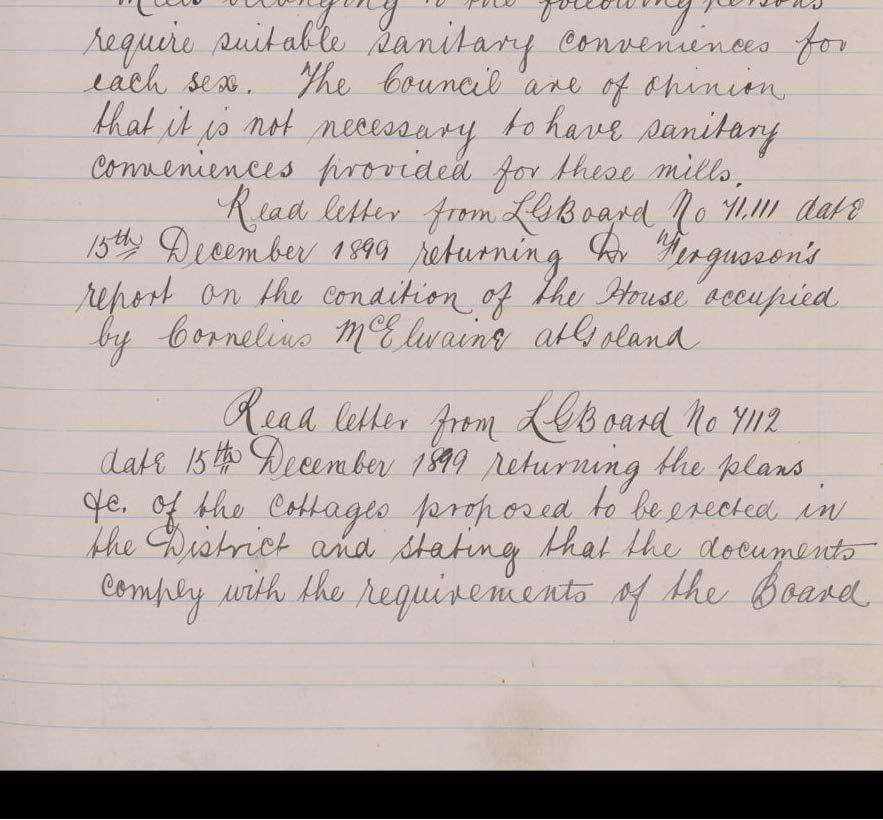 Mills belonging to the following persons
require suitable sanitary conveniences for
each sex. The Council are of opinion
that it is not necessary to have sanitary
conveniences provided for these mills.
Read letter from LGBoard No 71,111 date
15th December 1899 returning Dr Fergusson's
report on the condition of the House occupied
by Cornelius McElwaine at Goland
Read letter from LGBoard No 7112
date 15th December 1899 returning the plans
&c. of the Cottages proposed to be erected in
the District and stating that the documents
comply with the requirements of the Board